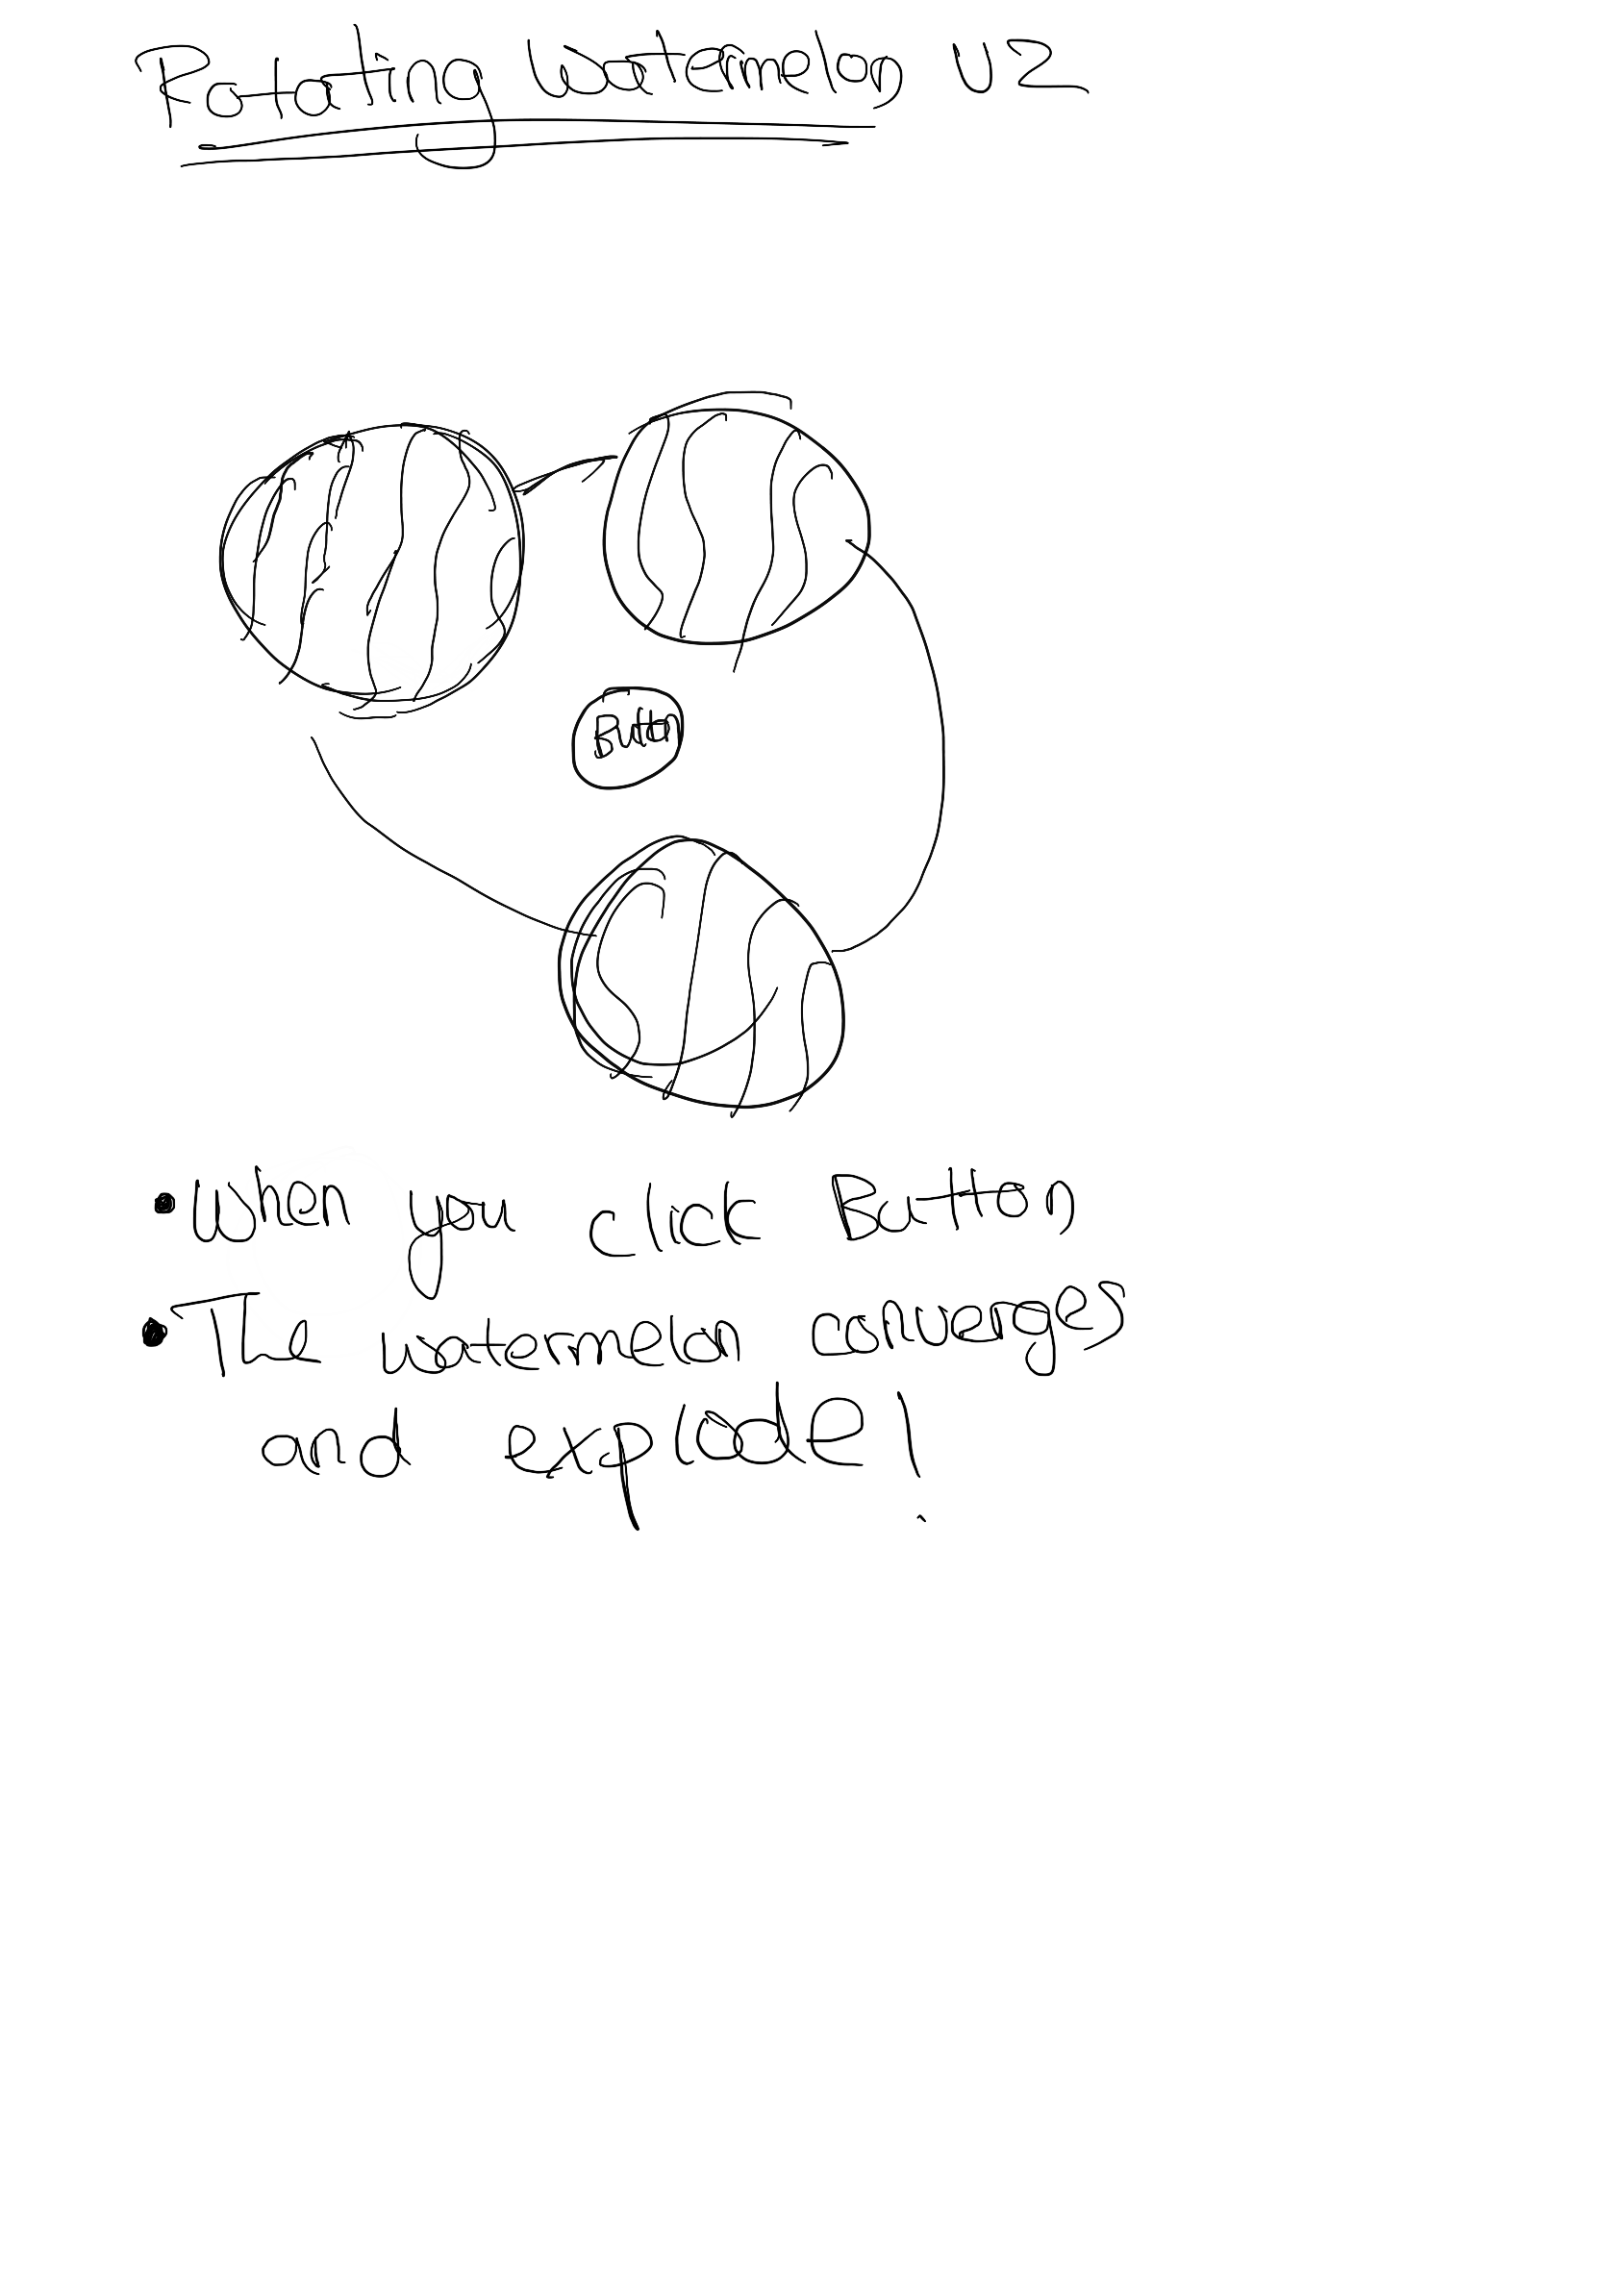 Rotating Watermelon V2
Button
• When you click Button
• The watermelon converges
and explode!